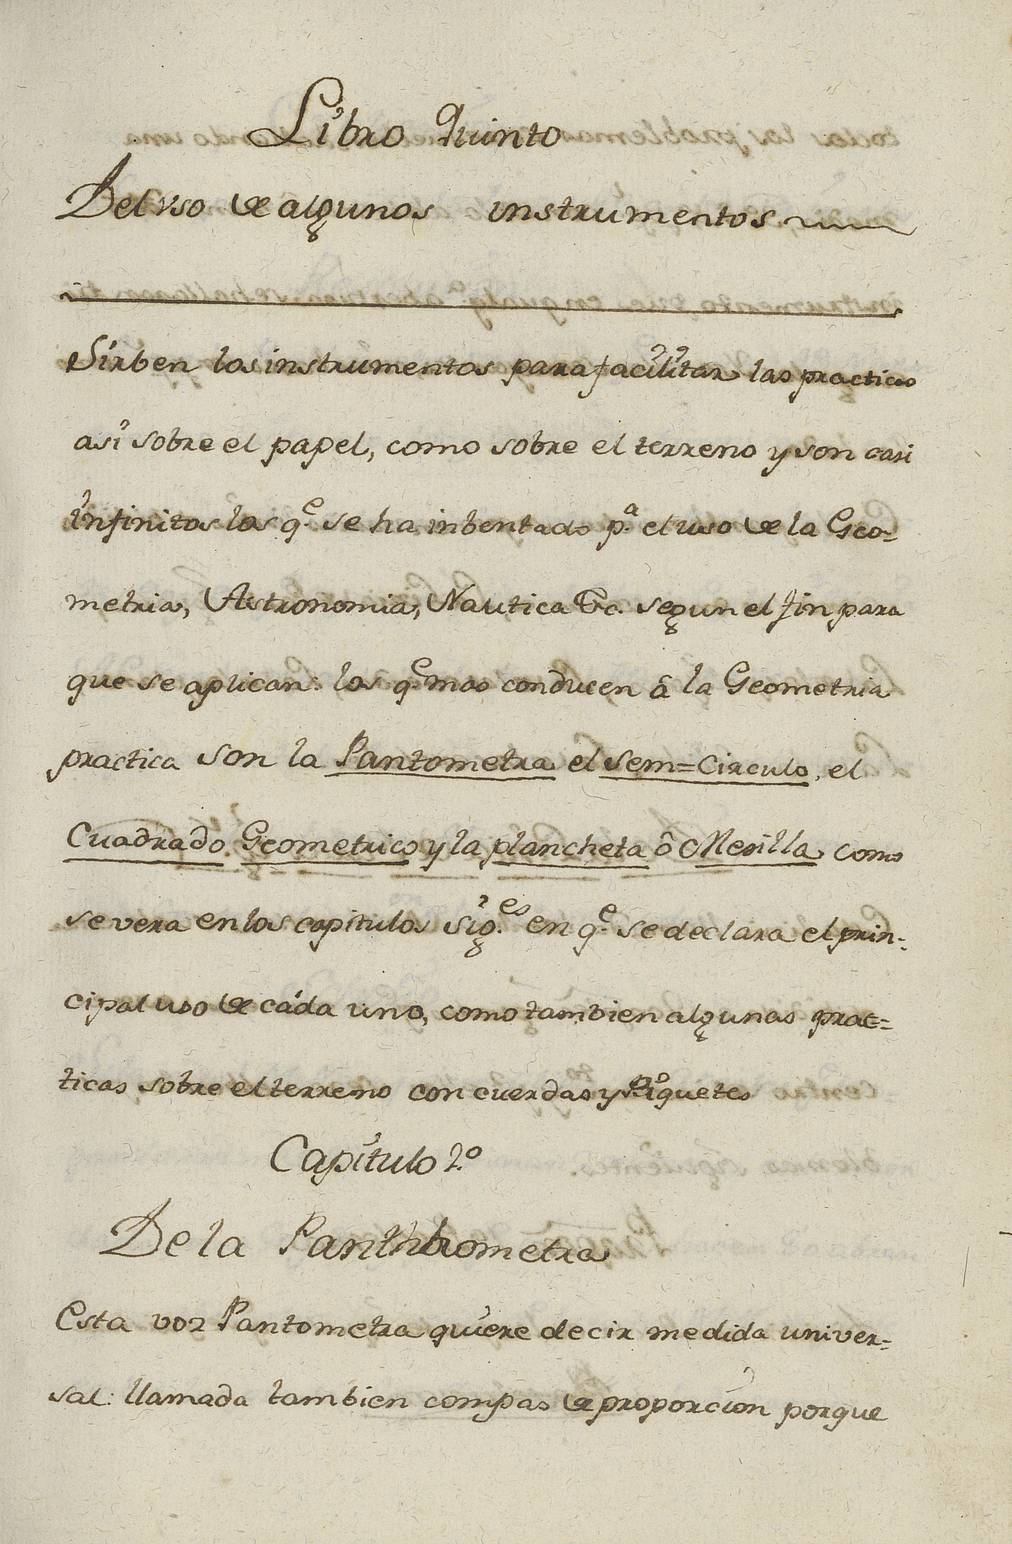 Libro Quinto
Del vso de algunos instrumentos
Sirben los instrumentos para facilitar las practicas
asi sobre el papel, como sobre el terreno y son casi
infinitos los q.e se ha inbentado p.a el uso de la Geo-
metria, Astronomia, Nautica &c. segun el fin para
que se aplican: los q.e mas conducen â la Geometria
practica son la Pantometra el sem=Circulo, el
Cuadrado Geometrico y la plancheta ô Mesilla como
se vera en los capitulos sig.es en q.e se declara el prin-
cipal uso de cada uno, como tambien algunas prac=
ticas sobre el terreno con cuerdas y Piquetes
Capitulo 2.o
De la Panthrometra
Esta voz Pantometra quiere decir medida univer=
sal: llamada tambien compas de proporcion porque